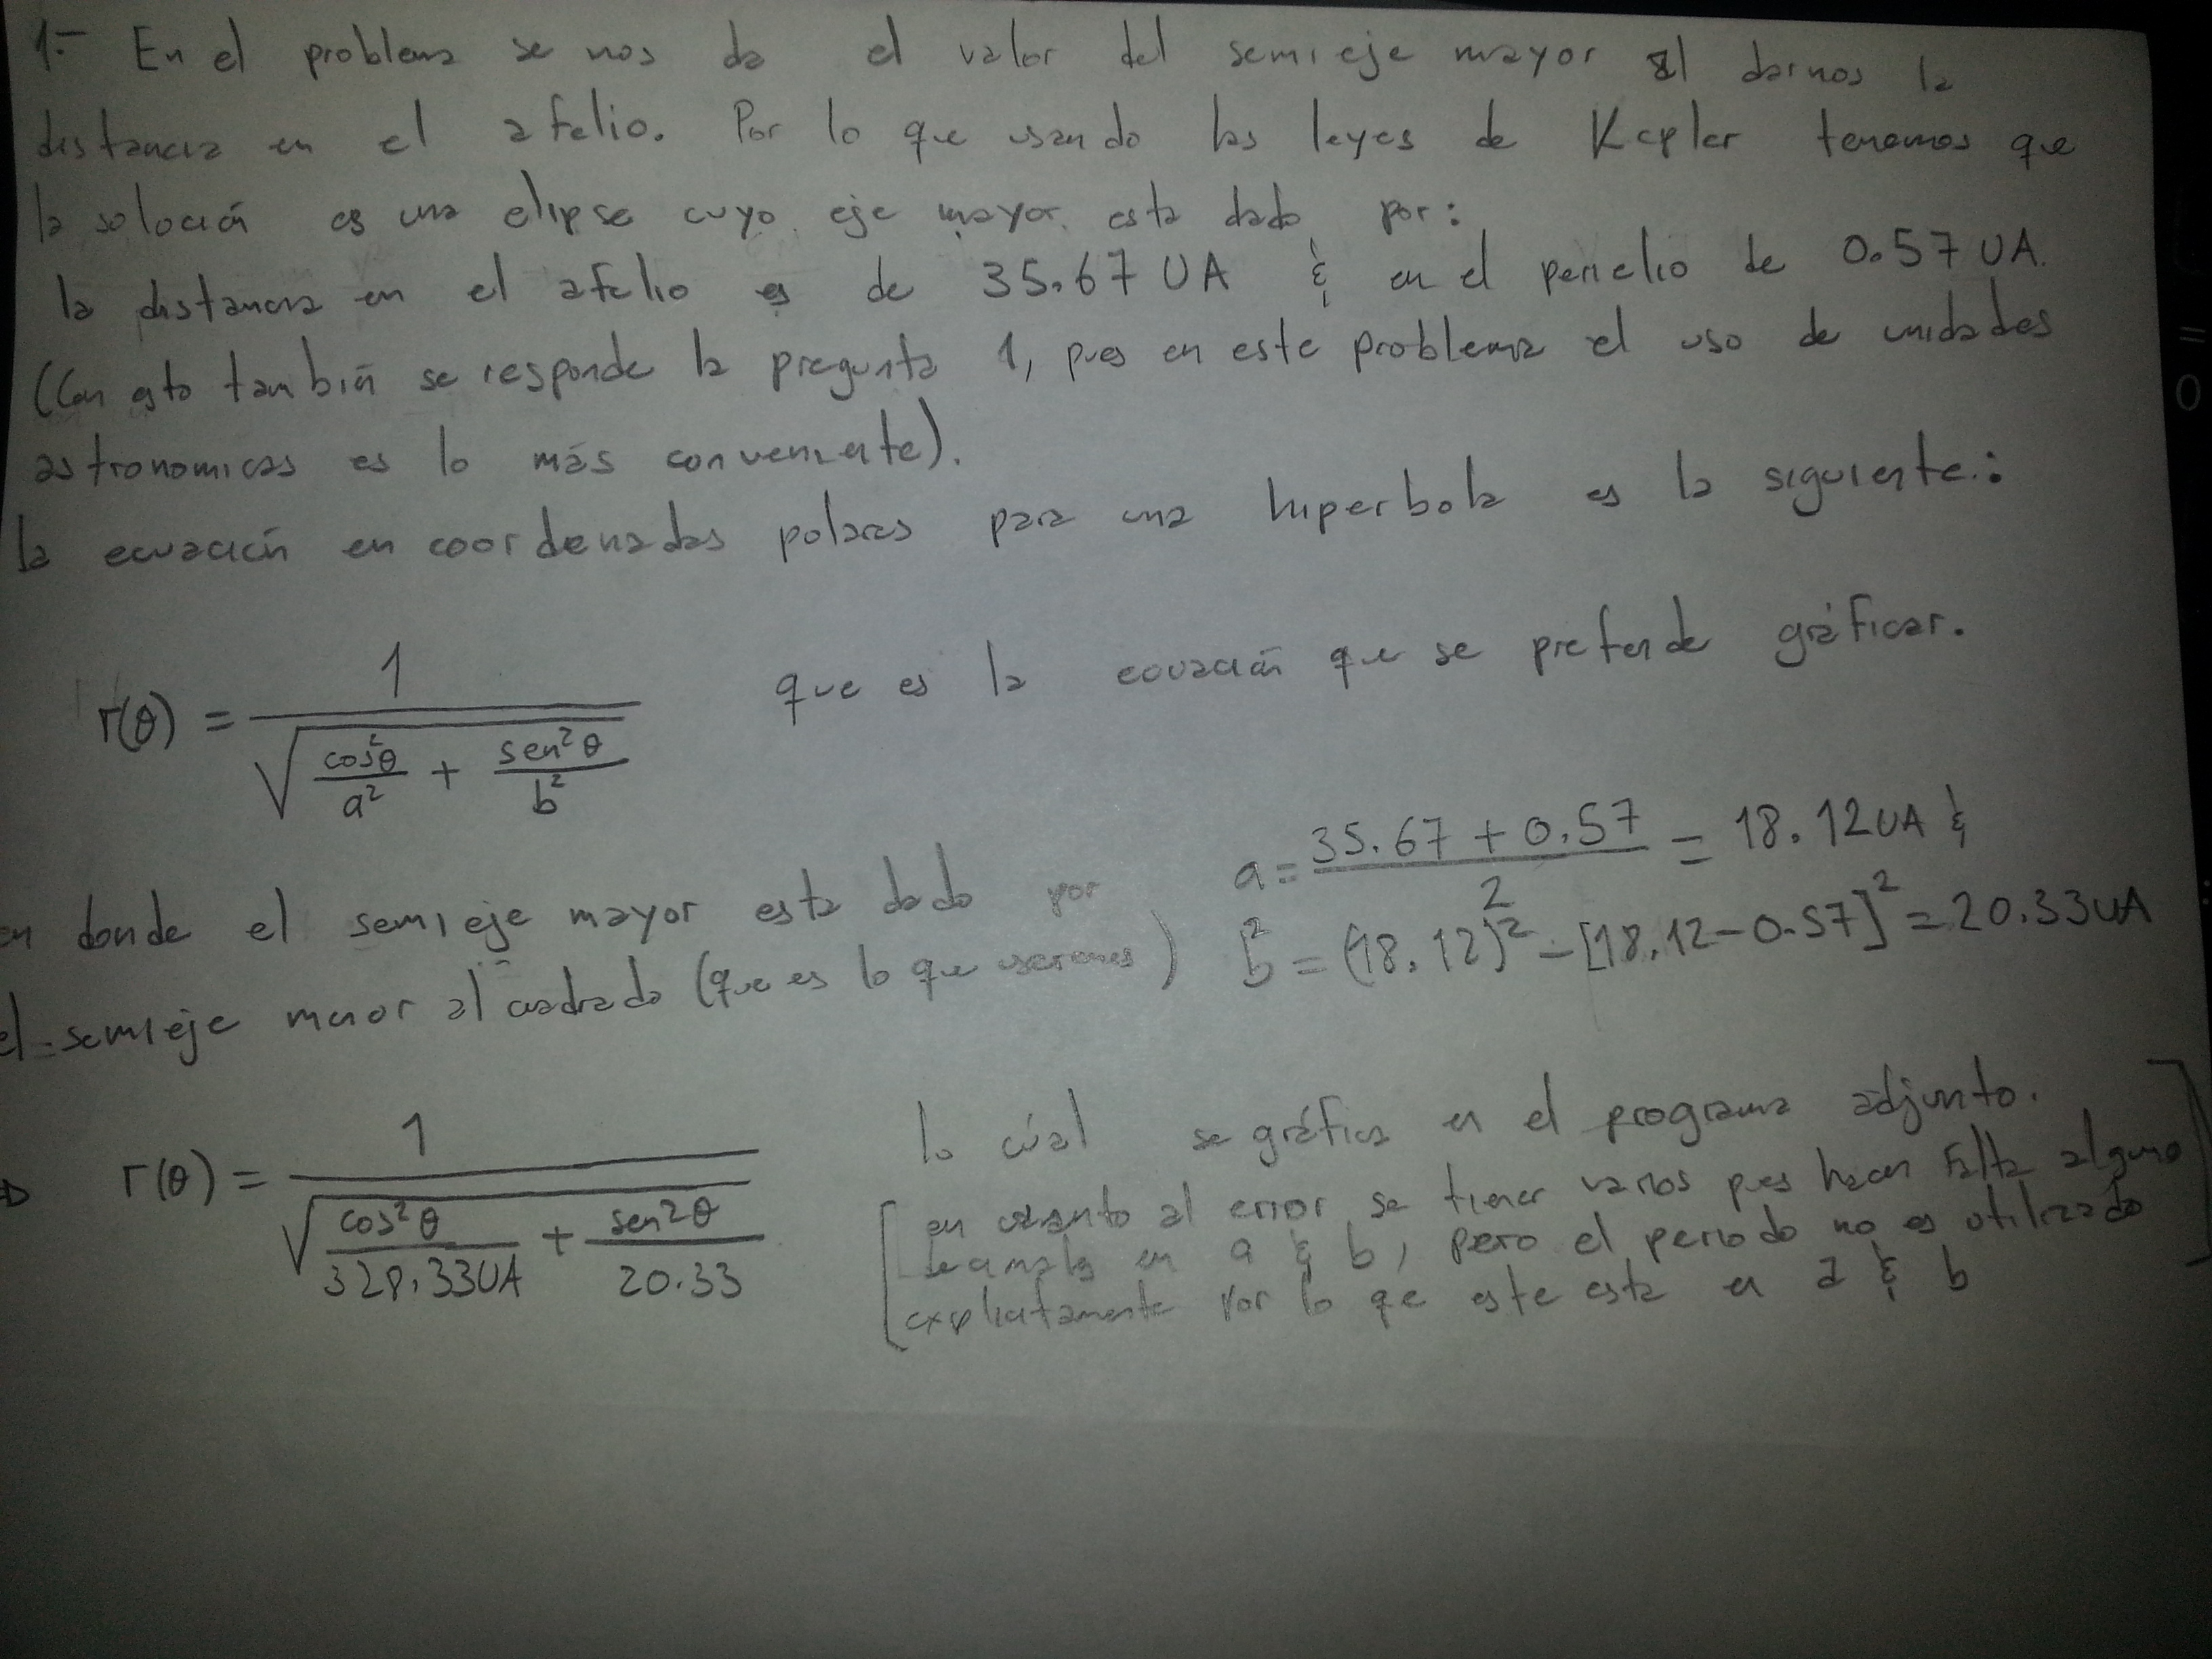 1.- En el problema se nos da el valor del semieje mayor al darnos la
distancia en el afelio. Por lo que usando las leyes de Kepler tenemos que
la solución es una elipse cuyo eje mayor esta dado por:
la distancia en el afelio es de 35.67 UA & en el perielio de 0.57 UA.
(Con esto también se responde la pregunta 1, pues en este problema el uso de unidades
astronomicas es lo más conveniente).
la ecuación en coordenadas polares para una hiperbola es la siguiente:
r(θ) = 1 / √(cos²θ/a² + sen²θ/b²) que es la ecuación que se pretende gráficar.
en donde el semieje mayor esta dado por a = (35.67 + 0.57)/2 = 18.12 UA &
el semieje menor al cuadrado (que es lo que usaremos) b² = (18.12)² - [18.12-0.57]² = 20.33 UA
⇒ r(θ) = 1 / √(cos²θ/328.33UA + sen²θ/20.33) lo cúal se gráfica en el programa adjunto.
[en cuanto al error se tienen varios pues hacen falta alguno
en a & b, pero el periodo no es utilizado
explicitamente por lo que este esta en a & b]
= 0